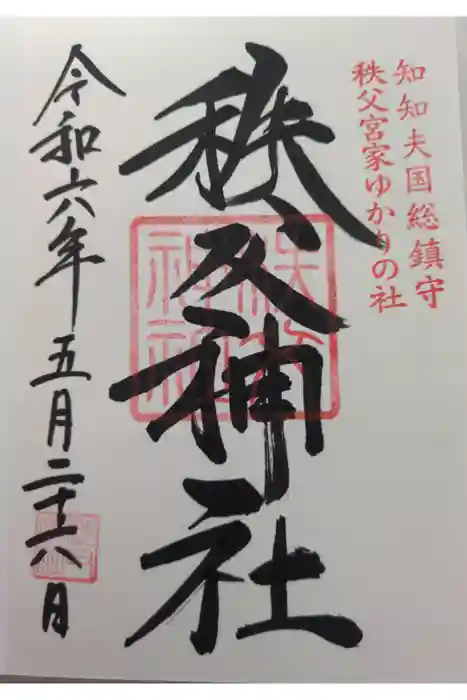 知知夫国総鎮守
秩父宮家ゆかりの社
秩父神社
秩父神社
令和六年五月二十八日